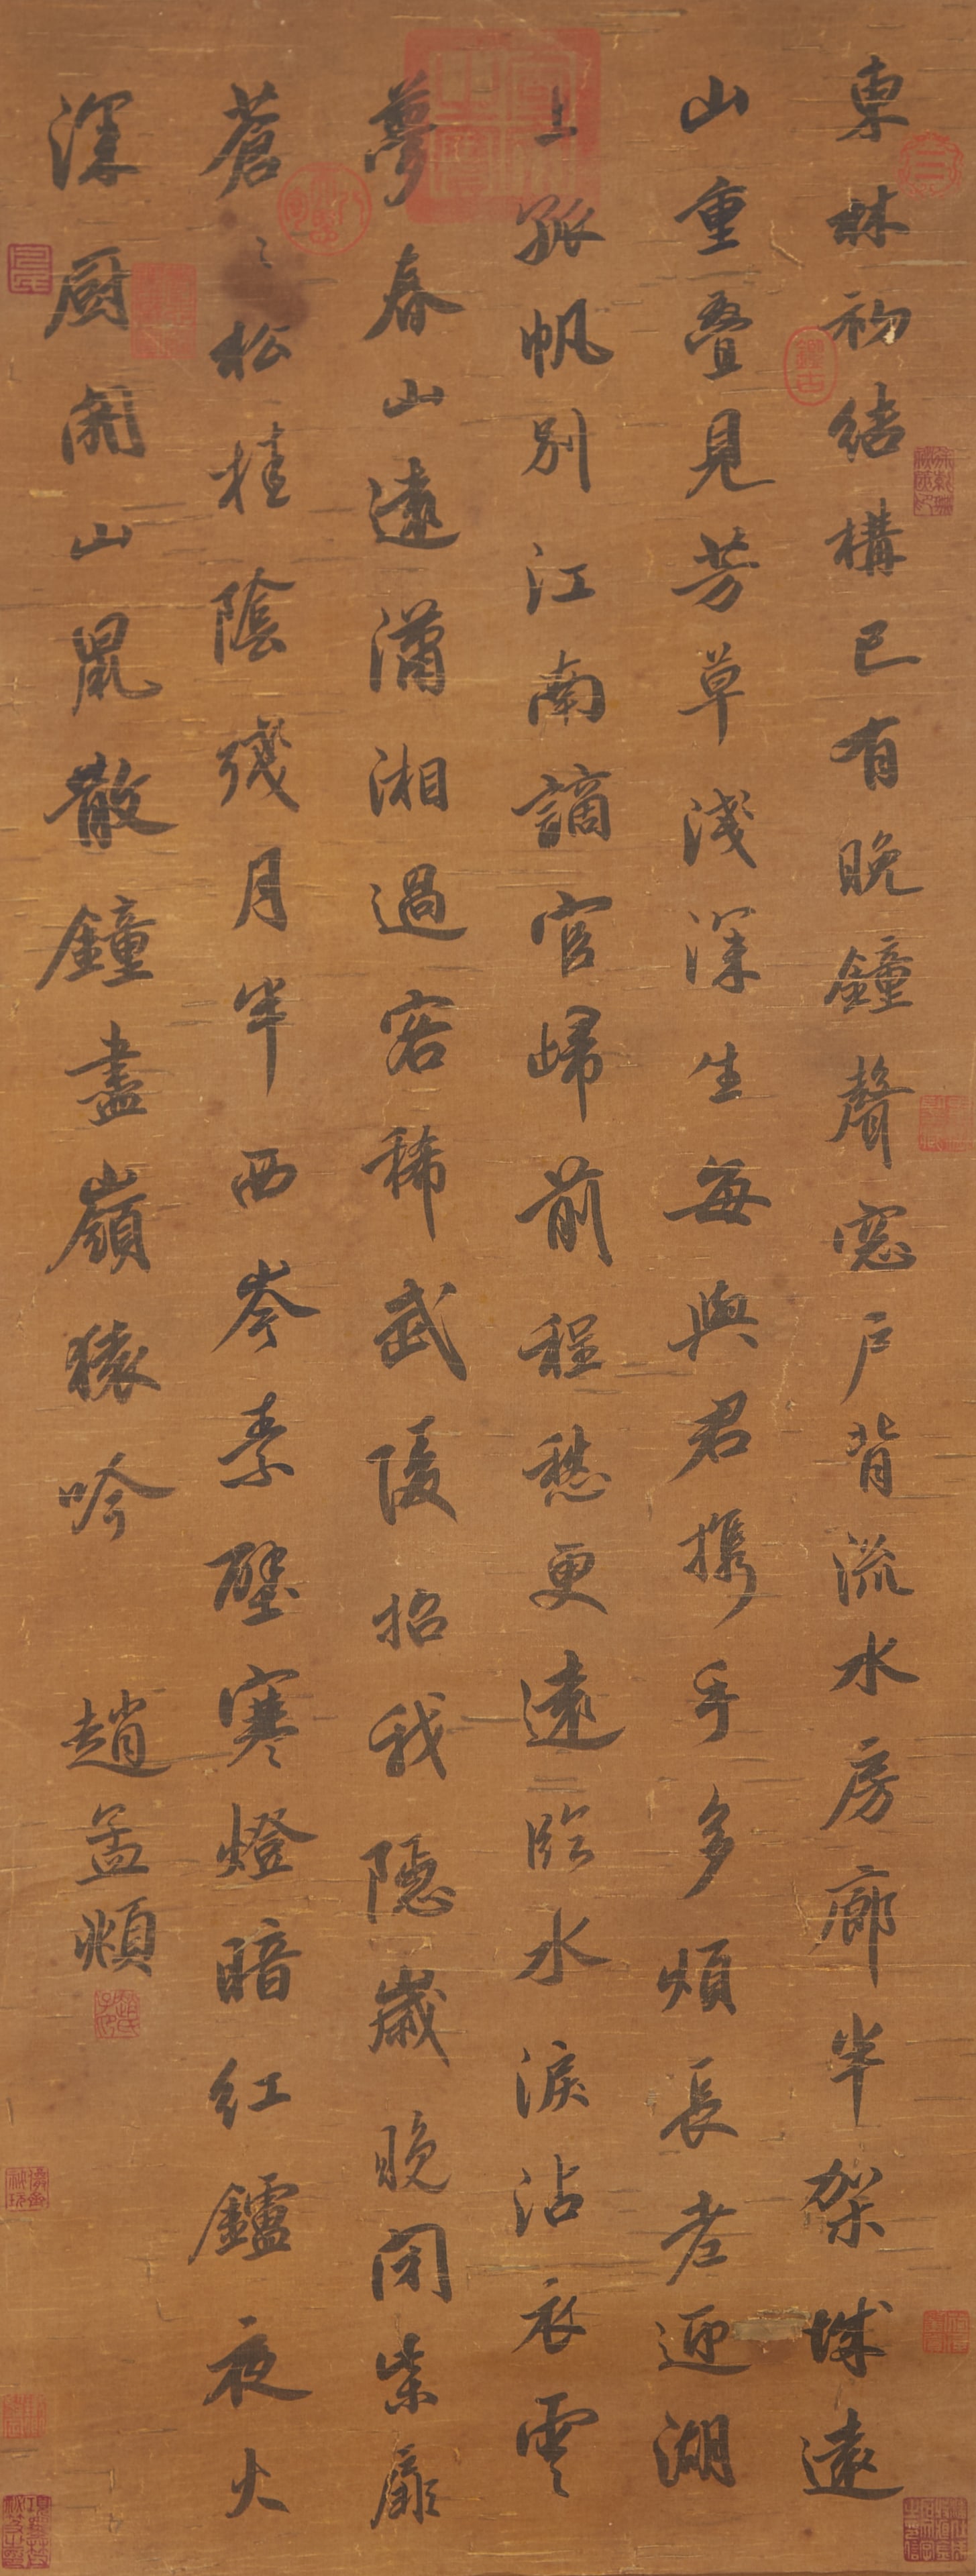 東林初結構已有晚鐘聲窓戶背流水房廊半架城遠
山重疊見芳草淺深生每與君攜手多煩長老迎湖
上孤帆別江南謫官歸前程愁更遠臨水淚沾衣雲
夢春山遠瀟湘過客稀武陵招我隱歲晚閉柴扉
蒼〻松桂陰殘月半西岑素壁寒燈暗紅鑪夜火
深厨開山鼠散鐘盡嶺猿吟 趙孟頫